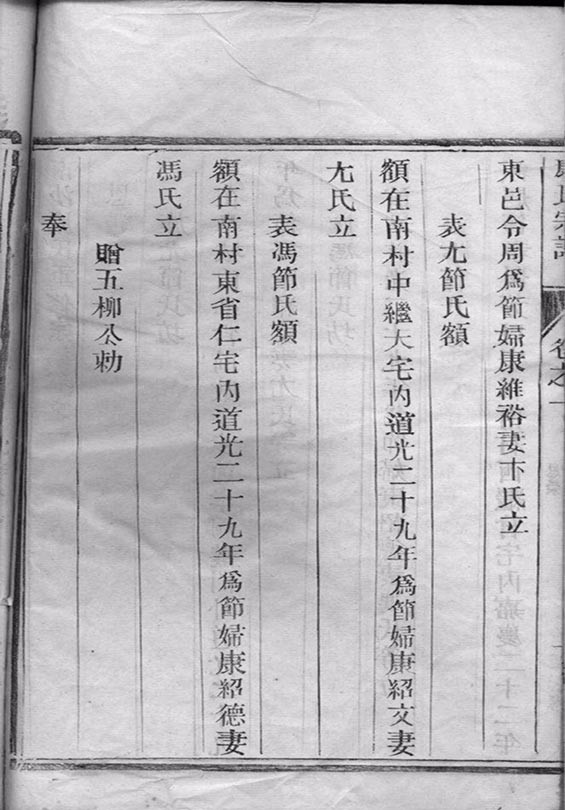 康氏宗譜 卷之一
東邑令周爲節婦康維裕妻卞氏立
表尤節氏額
額在南村中繼大宅內道光二十九年爲節婦康紹文妻
尤氏立
表馮節氏額
額在南村東省仁宅內道光二十九年爲節婦康紹德妻
馮氏立
贈五柳公勅
奉